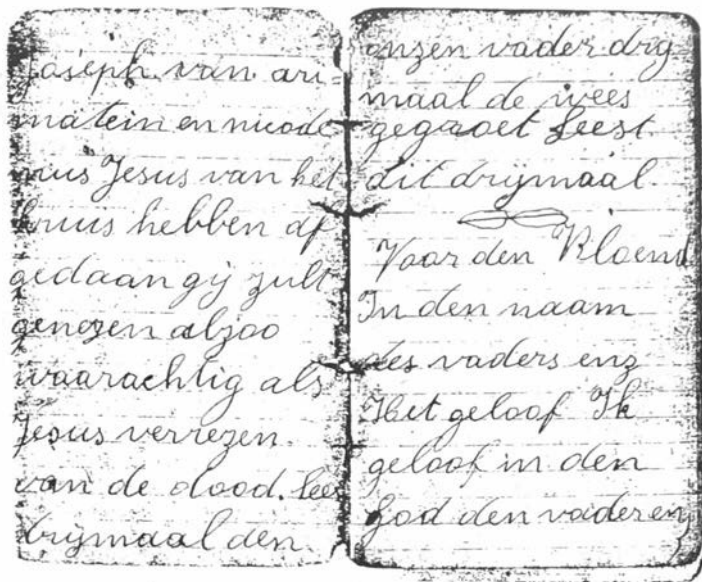 Joseph van ari
matein en nicode
mus Jesus van het
kruis hebben af
gedaan gij zult
genezen alzoo
waarachtig als
Jesus verrezen
van de dood. lees
drijmaal den
onzen vader drij
maal de wees
gegroet Leest
dit drijmaal
Voor den Vloems
In den naam
des vaders enz
Het geloof Ik
geloof in den
God den vader enz